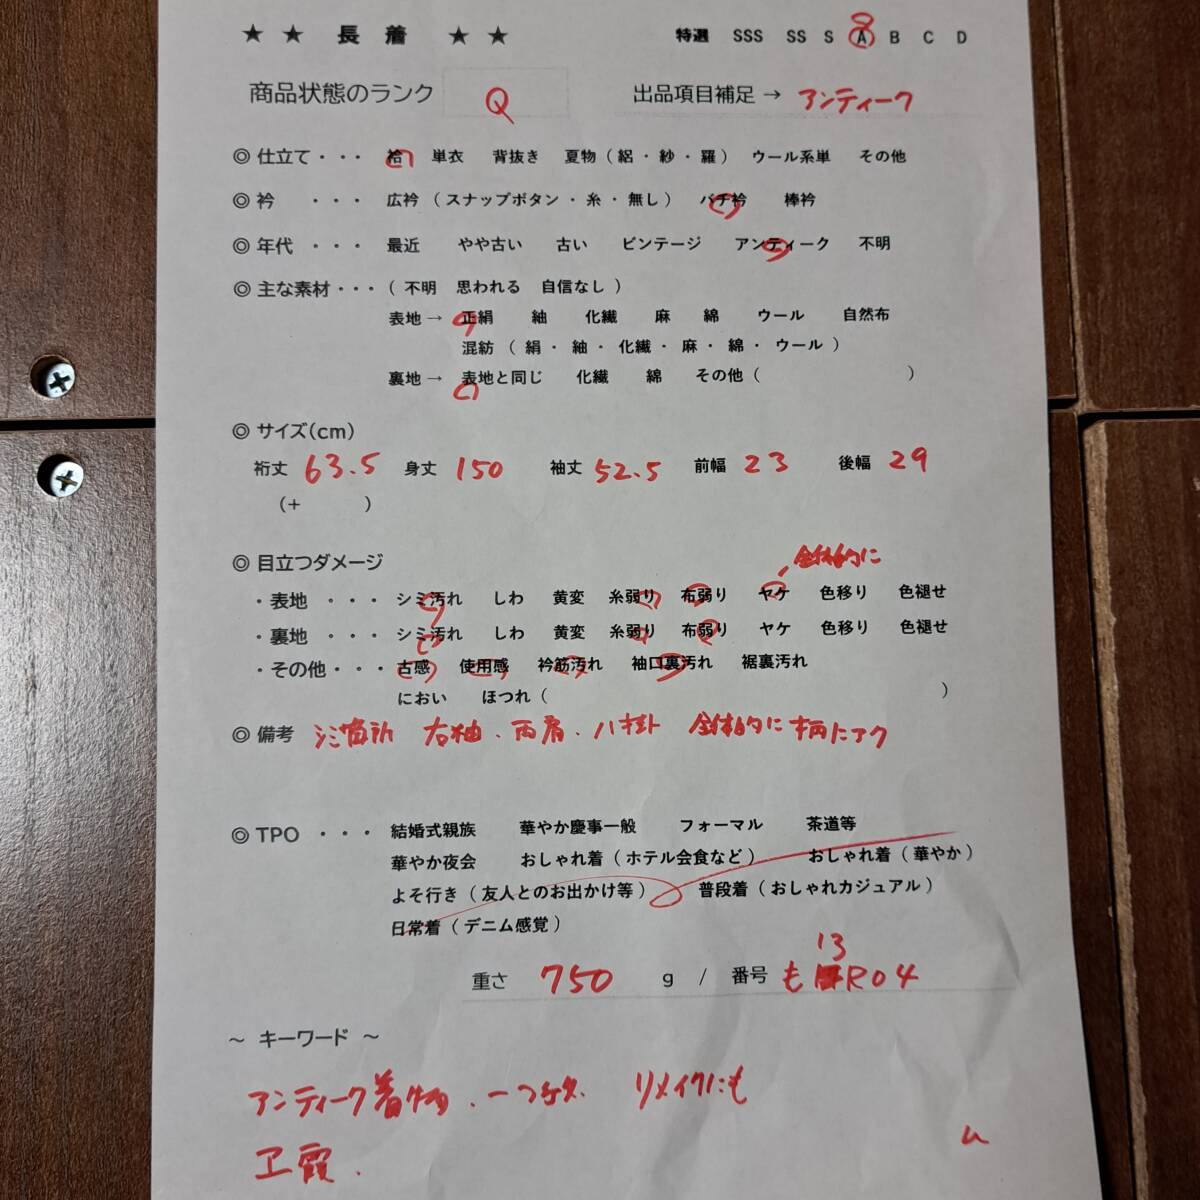 ★ ★ 長 着 ★ ★ 特選 SSS SS S A B C D
商品状態のランク Q 出品項目補足 → アンティーク
◎ 仕立て ・・・ 袷 単衣 背抜き 夏物 ( 絽 ・ 紗 ・ 羅 ) ウール系単 その他
◎ 衿 ・・・ 広衿 ( スナップボタン ・ 糸 ・ 無し ) バチ衿 棒衿
◎ 年代 ・・・ 最近 やや古い 古い ビンテージ アンティーク 不明
◎ 主な素材 ・・・ ( 不明 思われる 自信なし )
表地 → 正絹 紬 化繊 麻 綿 ウール 自然布
混紡 ( 絹 ・ 紬 ・ 化繊 ・ 麻 ・ 綿 ・ ウール )
裏地 → 表地と同じ 化繊 綿 その他 ( )
◎ サイズ(cm)
裄丈 63.5 身丈 150 袖丈 52.5 前幅 23 後幅 29
(+ )
◎ 目立つダメージ 全体的に
・表地 ・・・ シミ汚れ しわ 黄変 糸弱り 布弱り ヤケ 色移り 色褪せ
・裏地 ・・・ シミ汚れ しわ 黄変 糸弱り 布弱り ヤケ 色移り 色褪せ
・その他 ・・・ 古感 使用感 衿筋汚れ 袖口裏汚れ 裾裏汚れ
におい ほつれ ( )
◎ 備考 シミ箇所 右袖、両肩、八掛 全体的に柄にアク
◎ TPO ・・・ 結婚式親族 華やか慶事一般 フォーマル 茶道等
華やか夜会 おしゃれ着 ( ホテル会食など ) おしゃれ着 ( 華やか )
よそ行き ( 友人とのお出かけ等 ) 普段着 ( おしゃれカジュアル )
日常着 ( デニム感覚 )
13
重さ 750 g / 番号 も R04
～ キーワード ～
アンティーク着物、一つ紋、リメイクにも
ヱ霞、